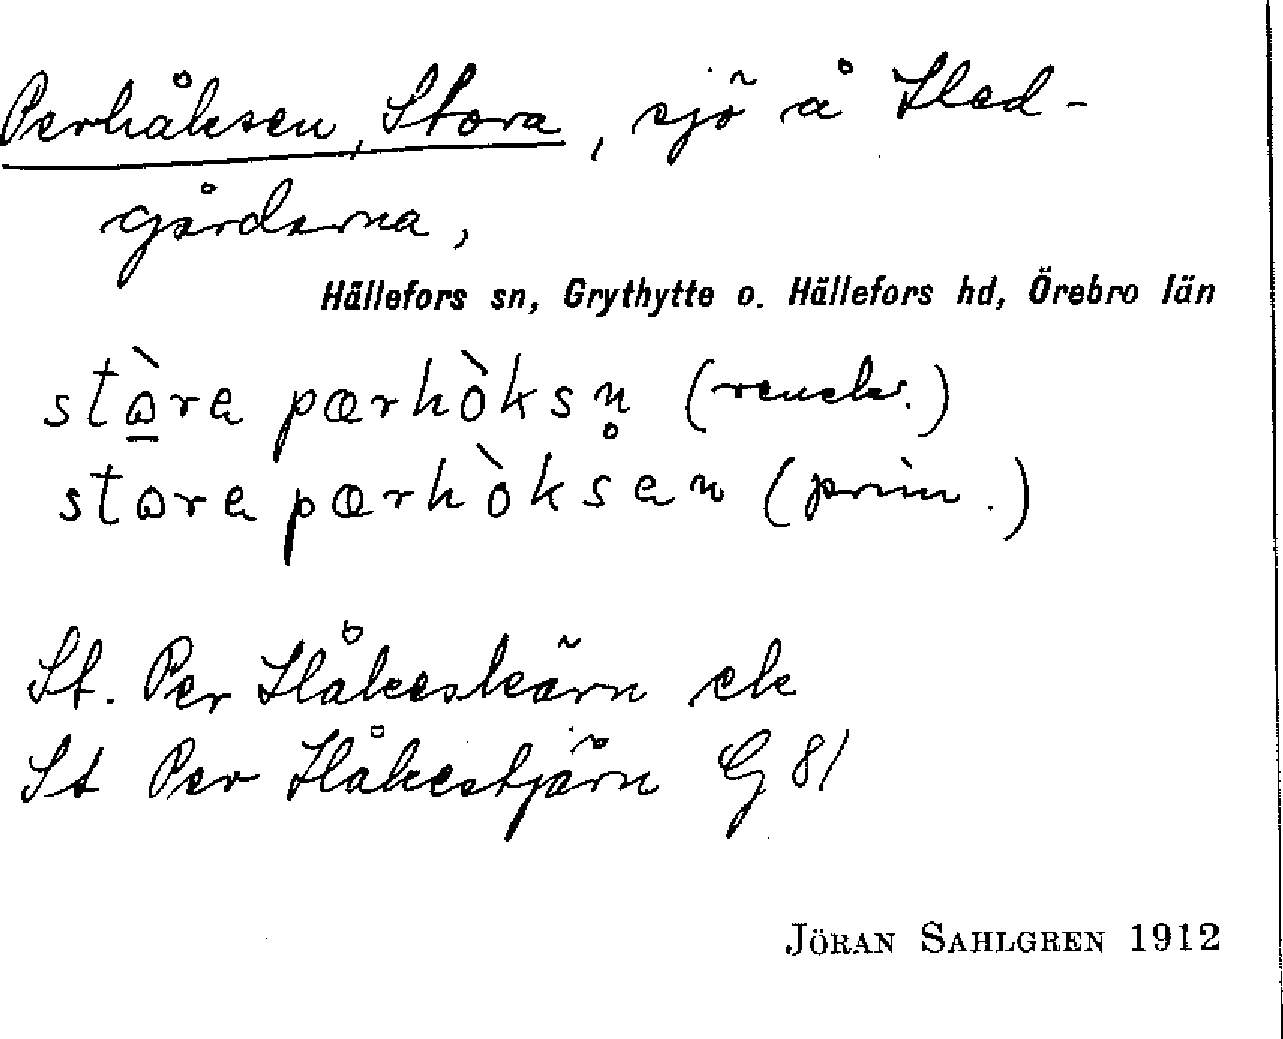 Perhåksen, Stora, sjö å Hed-
gårderna,
Hällefors sn, Grythytte o. Hällefors hd, Örebro län
stɷ̀re pærhòksn̥ (rencks.)
stɷre pærhòksen (prim.)
St. Per Håkeskärn ek
St Per Håkestjärn G 81
JÖRAN SAHLGREN 1912